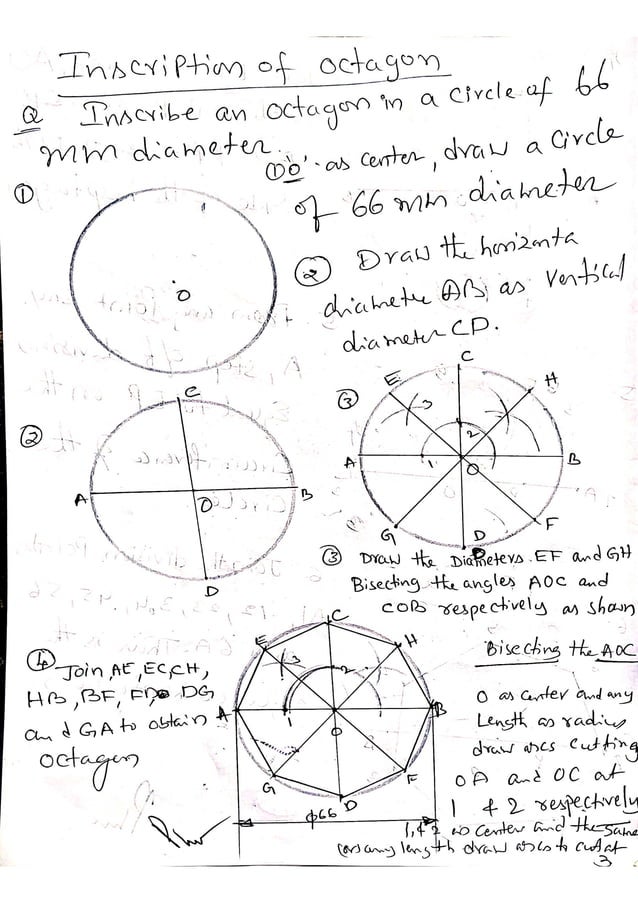 Inscription of octagon
Q Inscribe an octagon in a circle of 66
mm diameter.
① 'O' as center, draw a circle
of 66 mm diameter
①
O
② Draw the horizonta
diametre AB, as vertical
diameter CD.
②
C
A
O
B
D
③
C
E
H
3
2
A
1
O
B
G
D
F
③ Draw the Diameters EF and GH
Bisecting the angles AOC and
COB respectively as shown
④ Join, AE, EC, CH,
HB, BF, FD, DG
and GA to obtain
octagon
C
E
H
3
2
A
1
O
B
G
D
F
ϕ66
Bisecting the AOC
O as center and any
Length as radius
draw arcs cutting
OA and OC at
1 & 2 respectively
1, & 2 as center and the same
(or) any length draw arcs to cut at
3